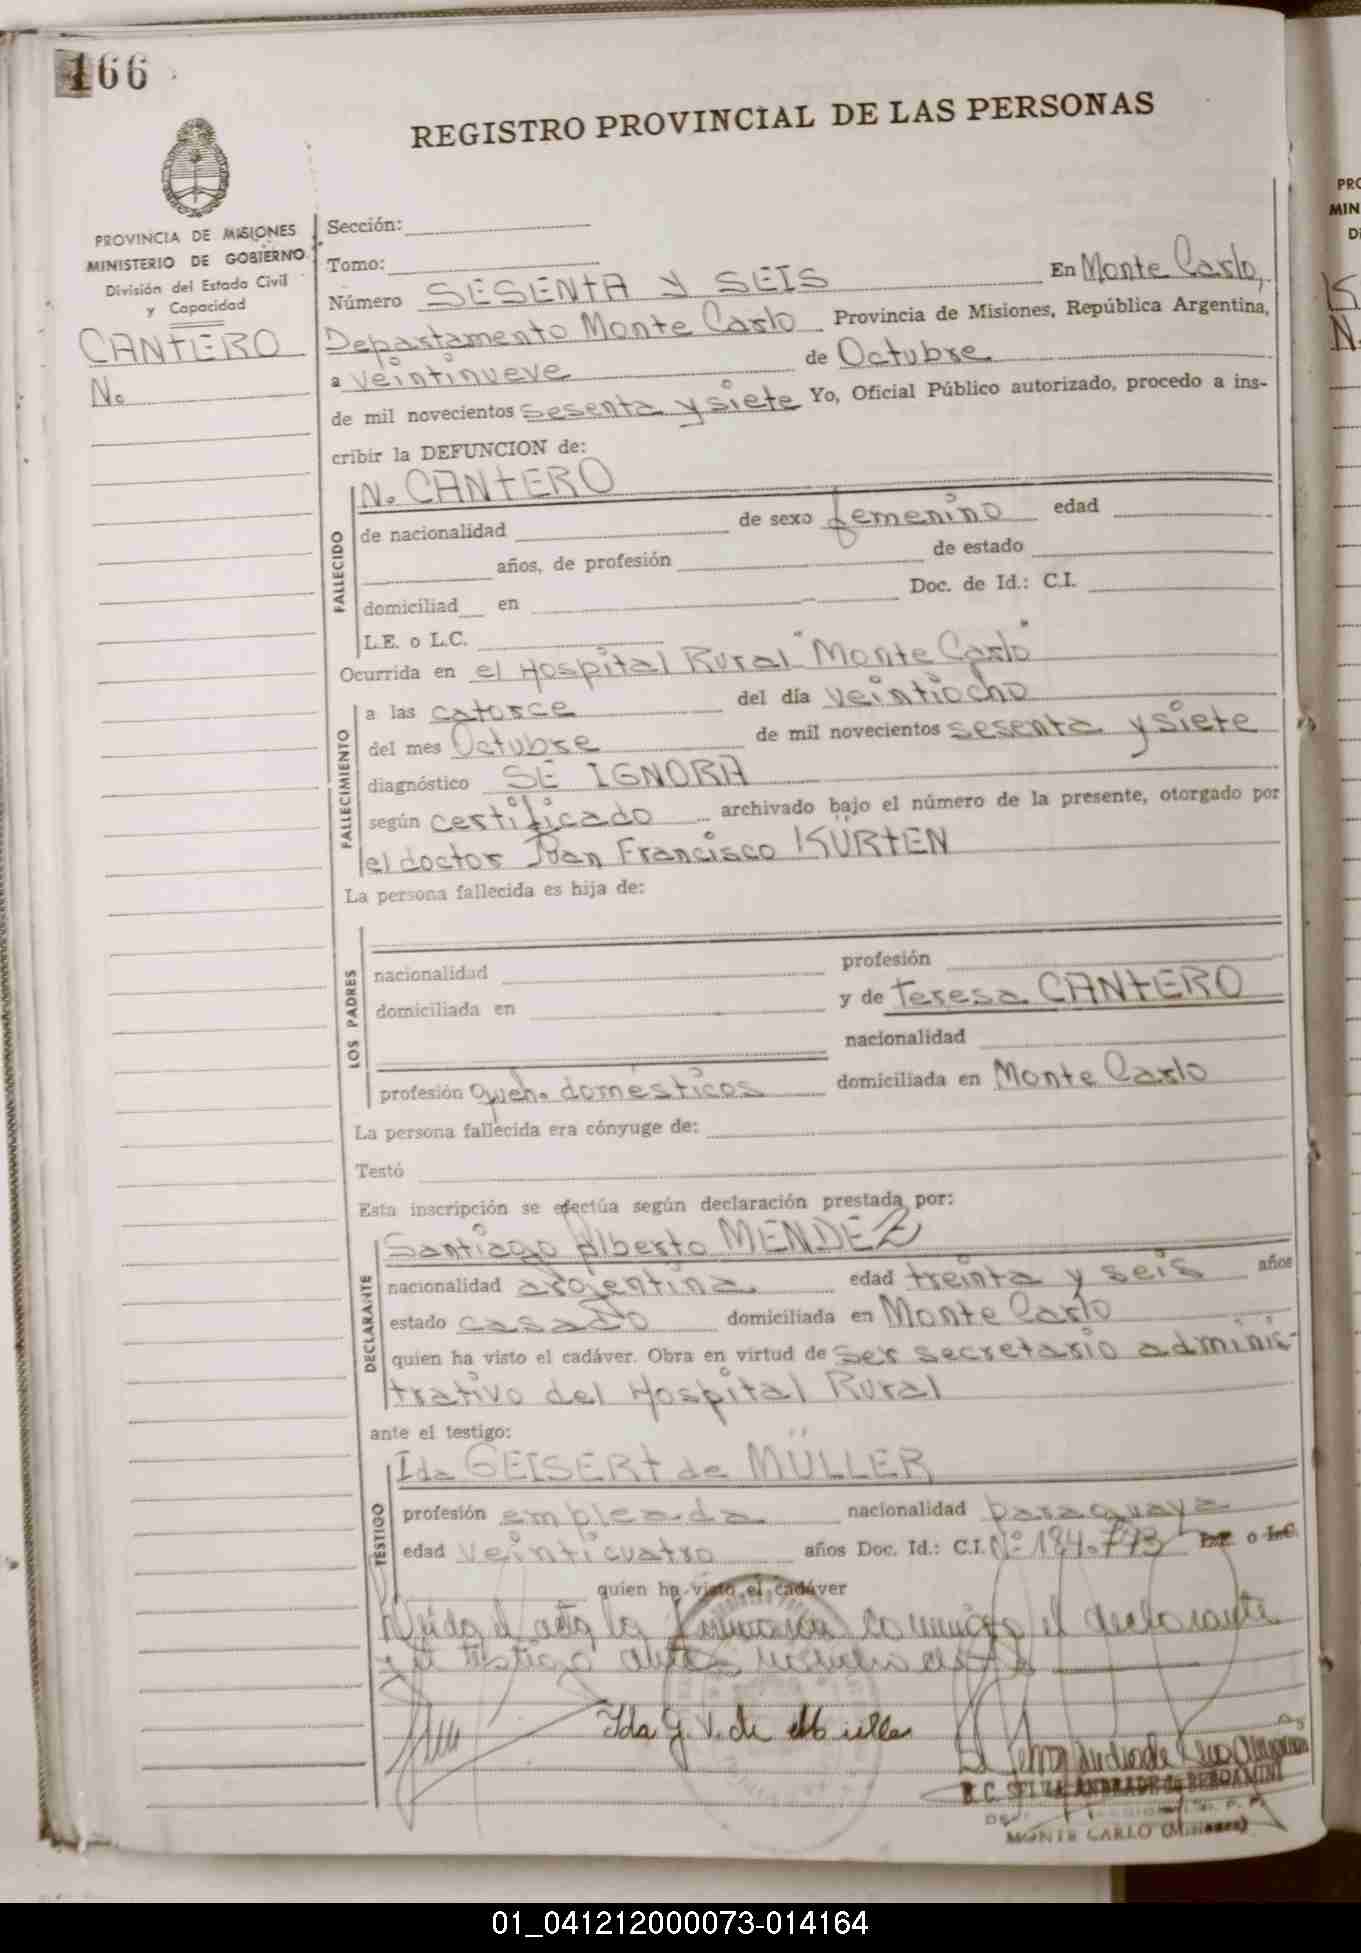 166
REGISTRO PROVINCIAL DE LAS PERSONAS
PROVINCIA DE MISIONES
MINISTERIO DE GOBIERNO
División del Estado Civil
y Capacidad
CANTERO
N.
Sección:
Tomo:
Número SESENTA Y SEIS En Monte Carlo,
Departamento Monte Carlo Provincia de Misiones, República Argentina,
a veintinueve de Octubre
de mil novecientos sesenta y siete Yo, Oficial Público autorizado, procedo a ins-
cribir la DEFUNCION de:
FALLECIDO
N. CANTERO
de nacionalidad de sexo femenino edad
años, de profesión de estado
domiciliad en Doc. de Id.: C.I.
L.E. o L.C.
Ocurrida en el Hospital Rural "Monte Carlo"
FALLECIMIENTO
a las catorce del día veintiocho
del mes Octubre de mil novecientos sesenta y siete
diagnóstico SE IGNORA
según certificado archivado bajo el número de la presente, otorgado por
el doctor Juan Francisco KÜRTEN
La persona fallecida es hija de:
LOS PADRES
nacionalidad profesión
domiciliada en y de Teresa CANTERO
nacionalidad
profesión queh. domésticos domiciliada en Monte Carlo
La persona fallecida era cónyuge de:
Testó
Esta inscripción se efectúa según declaración prestada por:
DECLARANTE
Santiago Alberto MENDEZ
nacionalidad argentina edad treinta y seis años
estado casado domiciliada en Monte Carlo
quien ha visto el cadáver. Obra en virtud de ser secretario adminis-
trativo del Hospital Rural
ante el testigo:
TESTIGO
Ida GEISERT de MÜLLER
profesión empleada nacionalidad paraguaya
edad veinticuatro años Doc. Id.: C.I. Nº 184.773 L.E. o L.C.
quien ha visto el cadáver
Leida el acta la firmaron conmigo el declarante
y el testigo antes
Ida G. V. de Müller
SELVA ANDRADE de BERGAMINI
MONTE CARLO (Misiones)
PRO
MIN
01_041212000073-014164